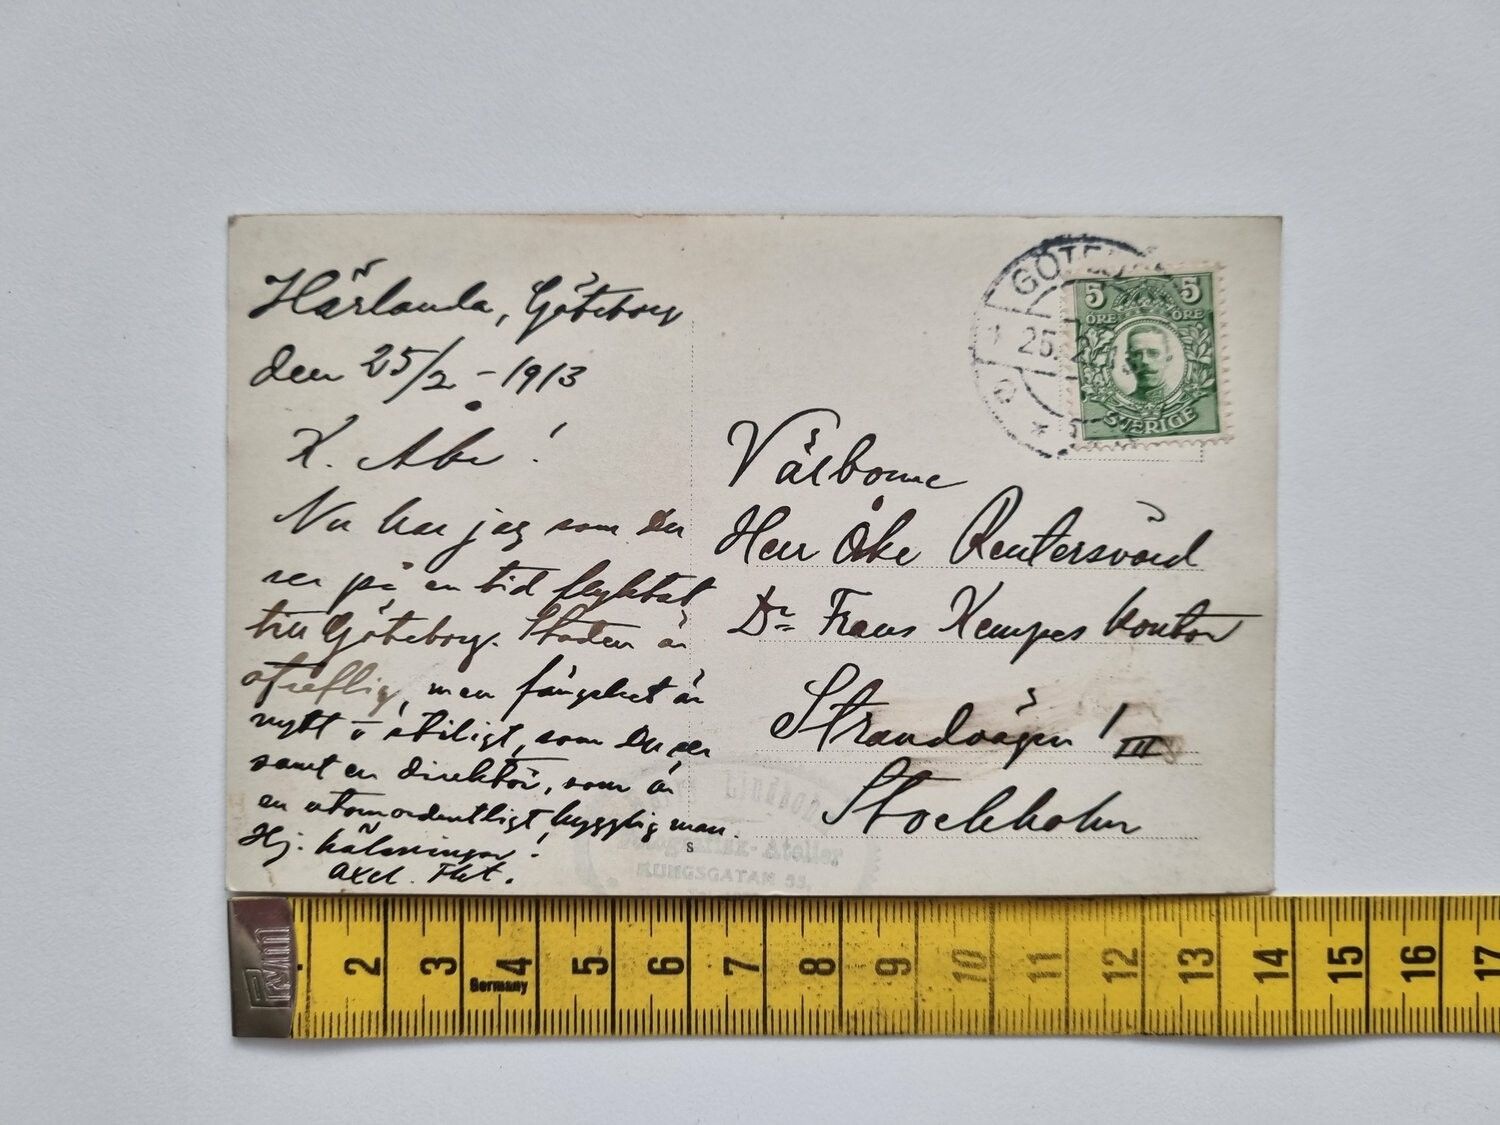 Härlanda, Göteborg
den 25/2 - 1913
K. Åke!
Nu har jag som Du
ser på en tid flyktat
till Göteborg. Staden är
otreflig, men fängelset är
nytt o stiligt, som Du ser
samt en direktör, som är
en utomordentligt hygglig man.
Hj. hälsningar!
Axel.
GÖTEBORG
25.2.13
5 5
ÖRE ÖRE
SVERIGE
Välborne
Herr Åke Reutersvärd
Dr Frans Kempes kontor
Strandvägen 1 III
Stockholm
S
Fotografisk-Atelier
KUNGSGATAN 55.
Prym
Germany
2 3 4 5 6 7 8 9 10 11 12 13 14 15 16 17